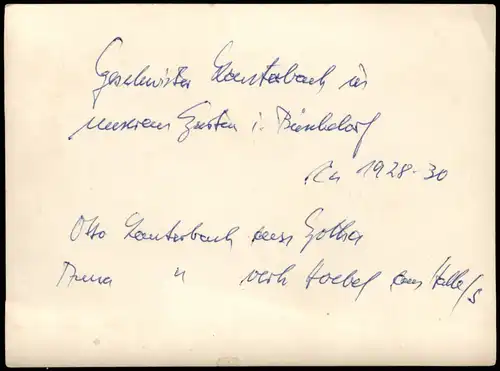 Geschwister Lauterbach in
unserem Garten i. Büschdorf
ca 1928-30
Otto Lauterbach aus Gotha
Anna " verh Hoebel aus Halle/S